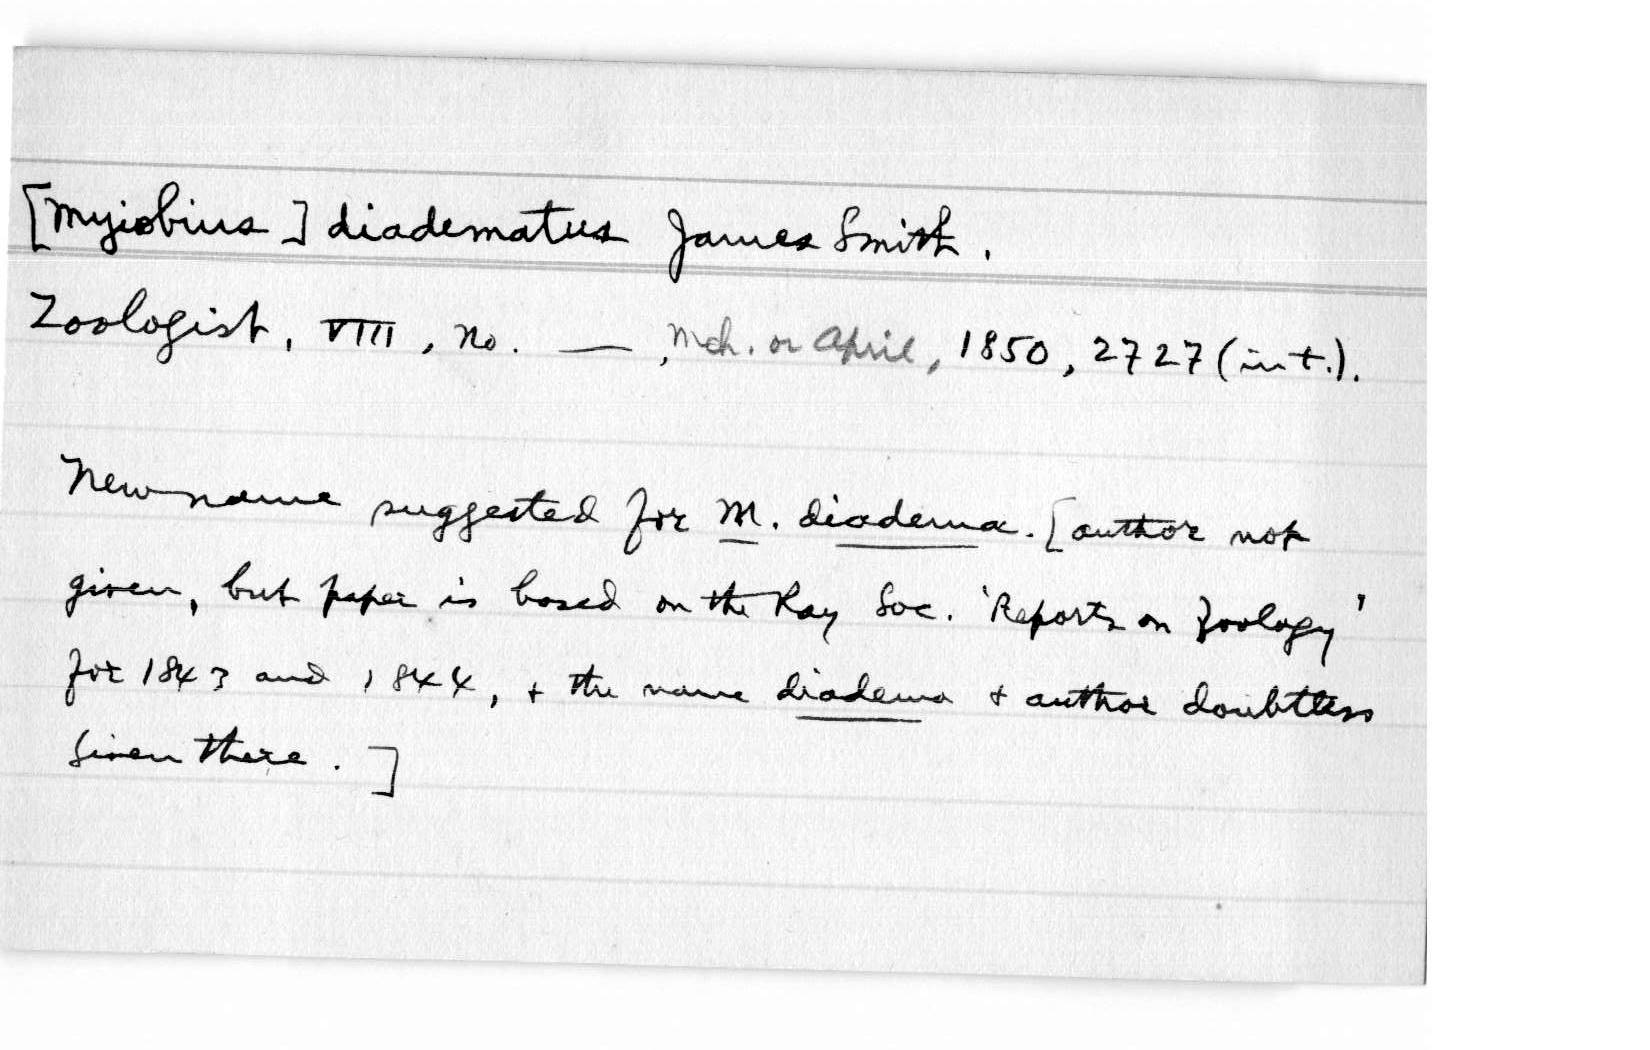 [Myiobius] diadematus James Smith.
Zoologist, VIII, no. — , Mch. or April, 1850, 2727 (int.).
New name suggested for M. diadema. [author not
given, but paper is based on the Ray Soc. 'Reports on Zoology'
for 1843 and 1844, + the name diadema + author doubtless
given there.]